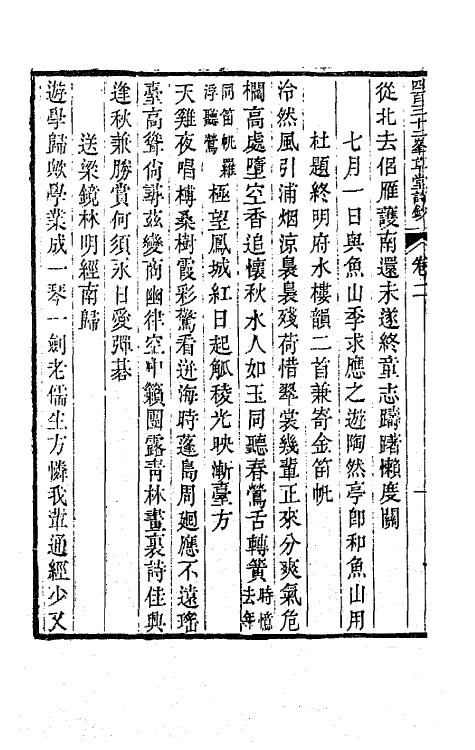 四百三十二峯草堂詩鈔 卷二 一
從北去侶雁護南還未遂終童志躊躇懶度關
七月一日與魚山季求應之遊陶然亭卽和魚山用
杜題終明府水樓韻二首兼寄金笛帆
冷然風引浦烟涼裊裊殘荷惜翠裳幾輩正來分爽氣危
欄高處墮空香追懷秋水人如玉同聽春鶯舌轉簧時憶去年
同笛帆羅浮聽鶯極望鳳城紅日起觚稜光映漸臺方
天雞夜唱榑桑樹霞彩驚看迸海時蓬島周廻應不遠瑤
臺高聳尙尋茲變商幽律空中籟團露靑林畫裏詩佳興
逢秋兼勝賞何須永日愛彈碁
送梁鏡林明經南歸
遊學歸歟學業成一琴一劍老儒生方憐我輩通經少又